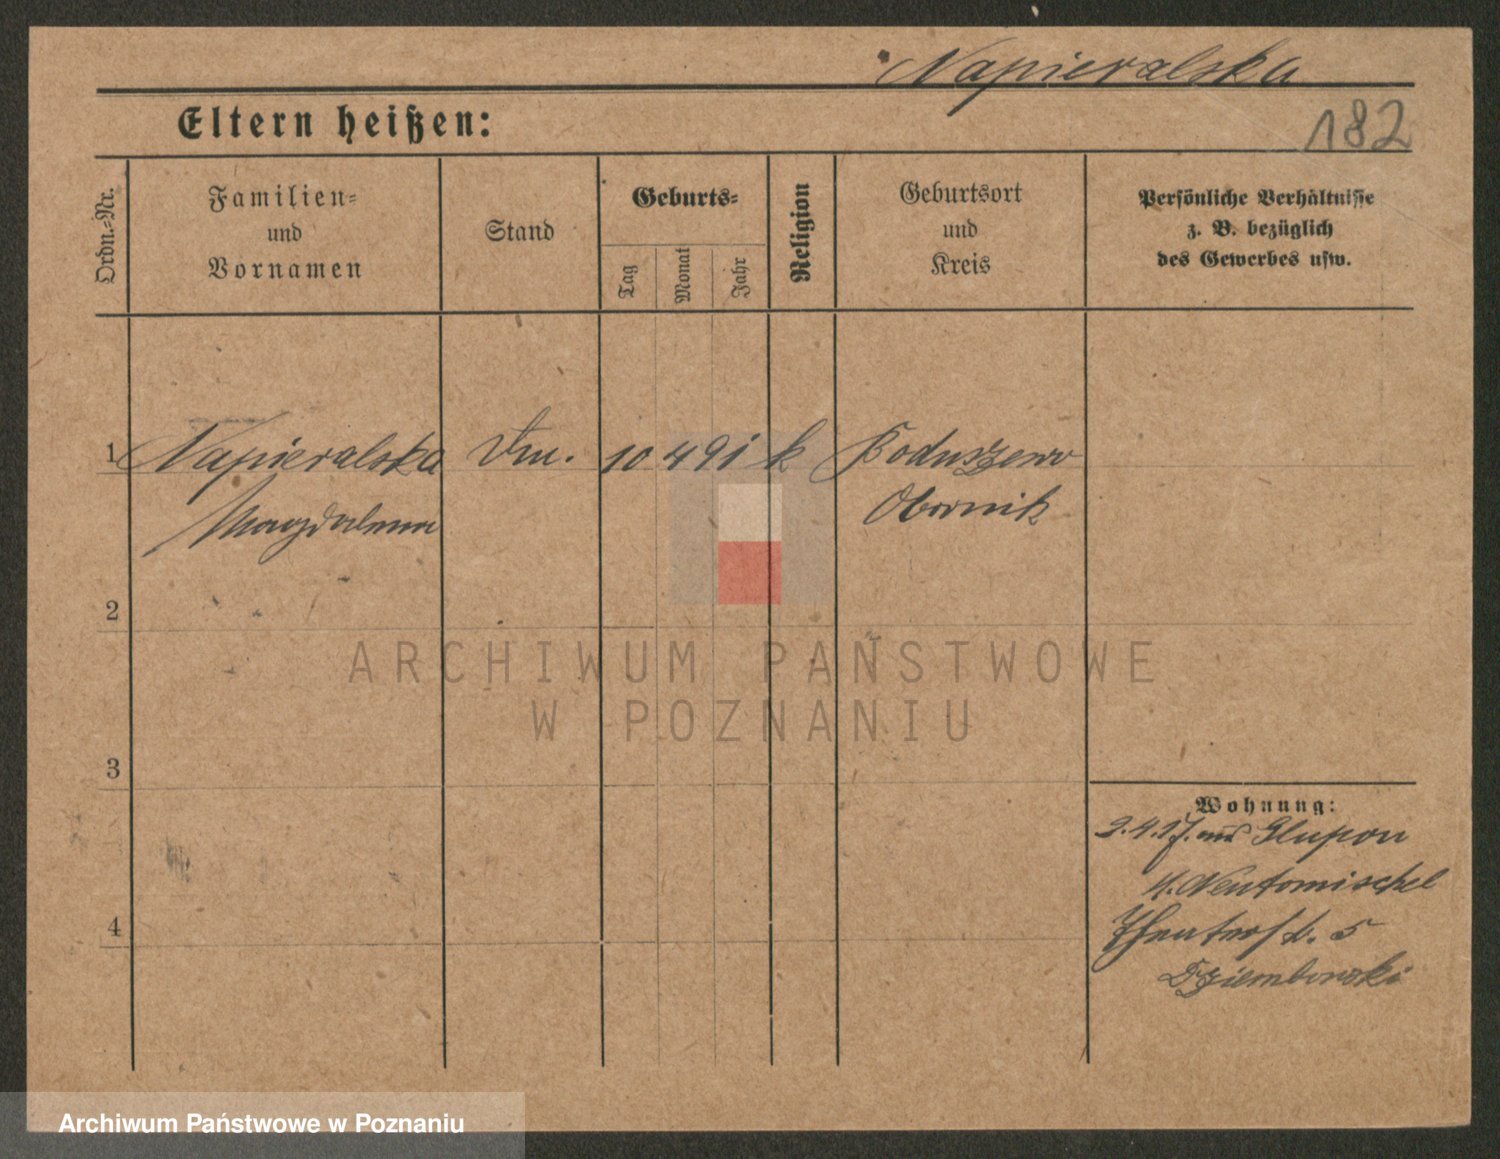 Napieralska
182
Eltern heißen:
Ordn.-Nr.
Familien-
und
Vornamen
Stand
Geburts-
Tag
Monat
Jahr
Religion
Geburtsort
und
Kreis
Persönliche Verhältnisse
z. B. bezüglich
des Gewerbes usw.
1 Napieralska 10 4 91 k Boduszewo
Magdalena Obornik
2
3
4
Wohnung:
Glupon
Neutomischel
Theaterstr. 5
Dziembowski
ARCHIWUM PAŃSTWOWE
W POZNANIU
Archiwum Państwowe w Poznaniu